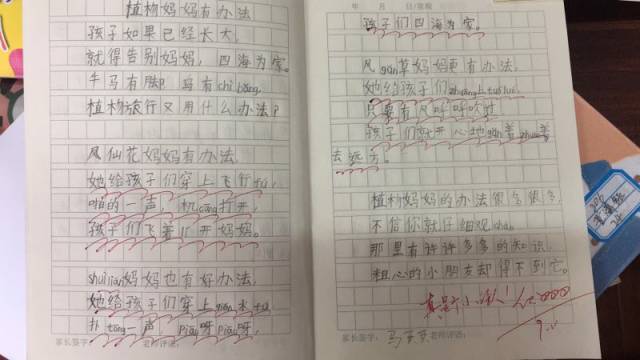 植物妈妈有办法
孩子如果已经长大,
就得告别妈妈,四海为家。
牛马有脚,鸟有chì bǎng,
植物旅行又用什么办法?
凤仙花妈妈有办法,
她给孩子们穿上飞行fú,
啪的一声,机cāng打开,
孩子们飞着离开妈妈。
shuì lián妈妈也有好办法,
她给孩子们穿上qián水fú
扑tōng一声,piāo呀piāo呀,
家长签字: 老师评语:
年 月 日/星期
孩子们四海为家。
风gǔn草妈妈更有办法,
她给孩子们
只要有风呼呼吹过
孩子们就开心地gǔn着 着
去远方。
植物妈妈的办法很多很多,
不信你就仔细观chá,
那里有许许多多的知识,
粗心的小朋友却得不到它。
真是小诗人!
家长签字: 老师评语: